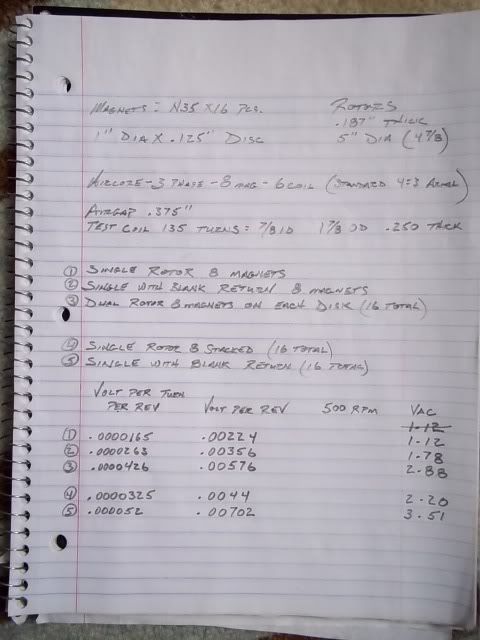 MAGNETS = N35 X 16 PCS.
1" DIA X .125" DISC
ROTORS
.187" THICK
5" DIA (4 7/8)
AIRCORE - 3 PHASE - 8 MAG - 6 COIL (STANDARD 4=3 AXIAL)
AIRGAP .375"
TEST COIL 135 TURNS = 7/8 ID 1 7/8 OD .250 THICK
① SINGLE ROTOR 8 MAGNETS
② SINGLE WITH BLANK RETURN 8 MAGNETS
③ DUAL ROTOR 8 MAGNETS ON EACH DISK (16 TOTAL)
④ SINGLE ROTOR 8 STACKED (16 TOTAL)
⑤ SINGLE WITH BLANK RETURN (16 TOTAL)
VOLT PER TURN PER REV VOLT PER REV 500 RPM VAC
1.12
① .0000165 .00224 1.12
② .0000263 .00356 1.78
③ .0000426 .00576 2.88
④ .0000325 .0044 2.20
⑤ .000052 .00702 3.51